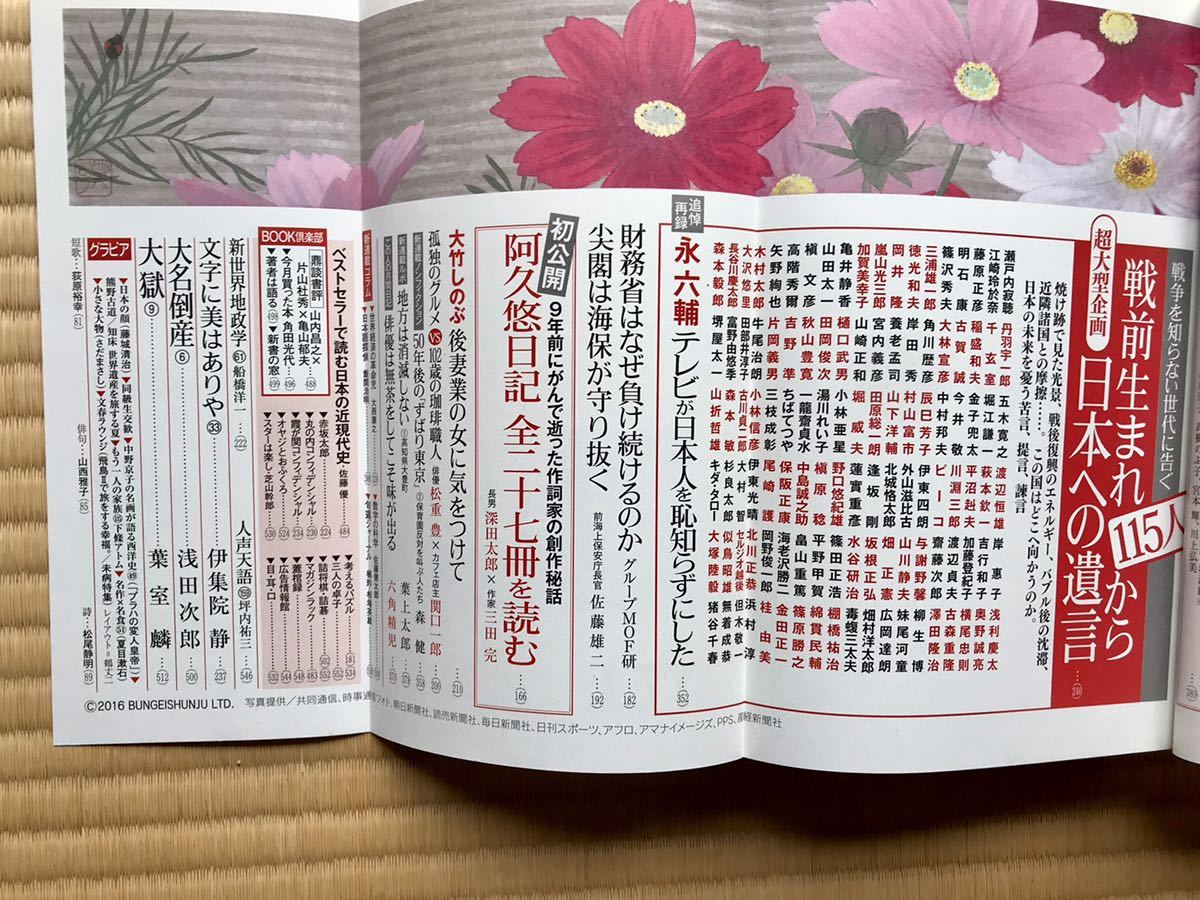 戦争を知らない世代に告ぐ
超大型企画
戦前生まれ115人から
日本への遺言
焼け跡で見た光景、戦後復興のエネルギー、バブル後の沈滞、
近隣諸国との摩擦……この国はどこへ向かうのか。
日本の未来を憂う苦言、提言、諫言
240
瀬戸内寂聴 丹羽宇一郎 五木寛之 渡辺恒雄 岸 惠子 浅利慶太
江崎玲於奈 千 玄室 堀江謙一 萩本欽一 吉行和子 奥野誠亮
藤原正彦 稲盛和夫 金子兜太 平沼赳夫 加藤登紀子 横尾忠則
明石 康 古賀 誠 今井 敬 川淵三郎 渡辺貞夫 古森重隆
篠沢秀夫 大林宣彦 中村邦夫 ピーコ 齋藤次郎 澤田隆治
三浦雄一郎 角川歴彦 辰巳芳子 伊東四朗 与謝野馨 柳生 博
徳光和夫 岸田 秀 村山富市 外山滋比古 山川静夫 妹尾河童
岡井 隆 養老孟司 山下洋輔 北城恪太郎 畑 正憲 広岡達朗
嵐山光三郎 宮内義彦 田原総一朗 逢坂 剛 坂根正弘 畑村洋太郎
加賀美幸子 山崎正和 堀 威夫 蓮實重彦 水谷研治 毒蝮三太夫
亀井静香 樋口武男 小林亜星 野口悠紀雄 篠田正浩 棚橋祐治
山田太一 岡田俊次 湯川れい子 槇原 稔 平野甲賀 綿貫民輔
槇 文彦 秋山豊寛 一龍齋貞水 中島誠之助 畠山重篤 篠原勝之
高階秀爾 吉野 準 ちばてつや 保阪正康 海老沢勝二 金田正一
矢野絢也 片岡義男 三枝成彰 尾崎 護 岡野俊一郎 桂 由美
木村太郎 牛尾治朗 小林信彦 伊東光晴 北川正恭 浜村 淳
大沢悠里 田部井淳子 古川貞二郎 大村 智 セルジオ越後 但木敬一
長谷川慶太郎 富野由悠季 森本 敏 杉良太郎 似鳥昭雄 無着成恭
森本毅郎 堺屋太一 山折哲雄 キダ・タロー 大塚陸毅 猪谷千春
追悼再録
永 六輔 テレビが日本人を恥知らずにした
352
財務省はなぜ負け続けるのか グループMOF研
182
尖閣は海保が守り抜く 前海上保安庁長官 佐藤雄二
192
初公開
9年前にがんで逝った作詞家の創作秘話
阿久悠日記 全二十七冊を読む
長男 深田太郎×作家 三田 完
166
大竹しのぶ 後妻業の女に気をつけて
210
孤独のグルメVS102歳の珈琲職人 俳優 松重 豊×カフェ店主 関口一郎
200
新連載ノンフィクション 50年後の「ずばり東京」 ②保育園反対を叫ぶ人たち 森 健
358
新連載ルポ 地方は消滅しない ①高知県大豊町 葉上太郎
俳優は無茶をしてこそ味が出る 六角精児
370
新連載コラム
BOOK倶楽部
ベストセラーで読む日本の近現代史 佐藤 優
484
鼎談書評 山内昌之×片山杜秀×亀山郁夫
488
▼今月買った本 角田光代
496
▼新書の窓
499
▼著者は語る
498
▼赤坂太郎
224
▼丸の内コンフィデンシャル
▼霞が関コンフィデンシャル
▼オヤジとおふくろ
▼スターは楽し 芝山幹郎
530
▼考えるパズル
▼三人の卓子
▼詰将棋・詰碁
▼マガジンラック
▼蓋棺録
▼広告情報館
▼目・耳・口
新世界地政学 61 船橋洋一
222
人声天語 159 坪内祐三
546
文字に美はありや 33 伊集院 静
237
大名倒産 ⑥ 浅田次郎
500
大獄 ⑨ 葉室 麟
512
グラビア
▼日本の顔(藤城清治) ▼同級生交歓 ▼中野京子の名画が語る西洋史49(プラハの変人皇帝)
熊野古道/知床 世界遺産を旅する夏 ▼もう一人の家族 下條アトム ▼名作×名食51(夏目漱石)
▼小さな大物(さだまさし) ▼文春ラウンジ(飛鳥Ⅱで旅をする幸福。/未病特集)
短歌…荻原裕幸 81
俳句…山西雅子 85
詩…松尾静明 89
©2016 BUNGEISHUNJU LTD. 写真提供/共同通信、時事通信フォト、朝日新聞社、読売新聞社、毎日新聞社、日刊スポーツ、アフロ、アマナイメージズ、PPS、産経新聞社